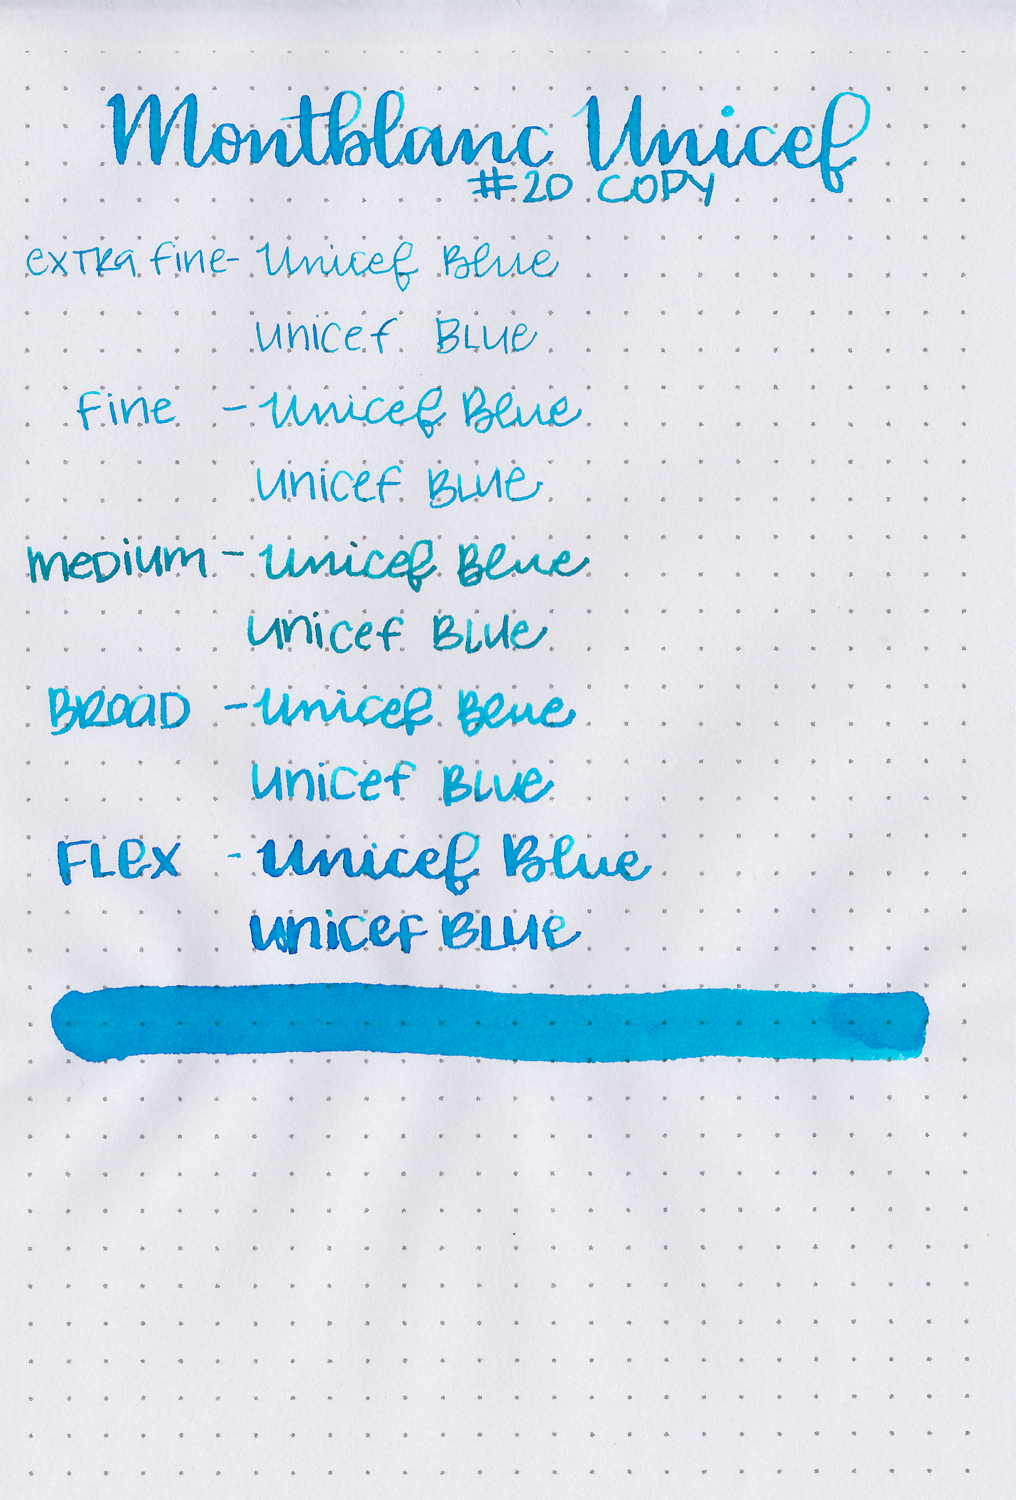 Montblanc Unicef
#20 COPY
extra fine- Unicef Blue
unicef Blue
fine - Unicef Blue
unicef Blue
medium - Unicef Blue
unicef Blue
Broad - Unicef Blue
unicef Blue
Flex - Unicef Blue
unicef Blue